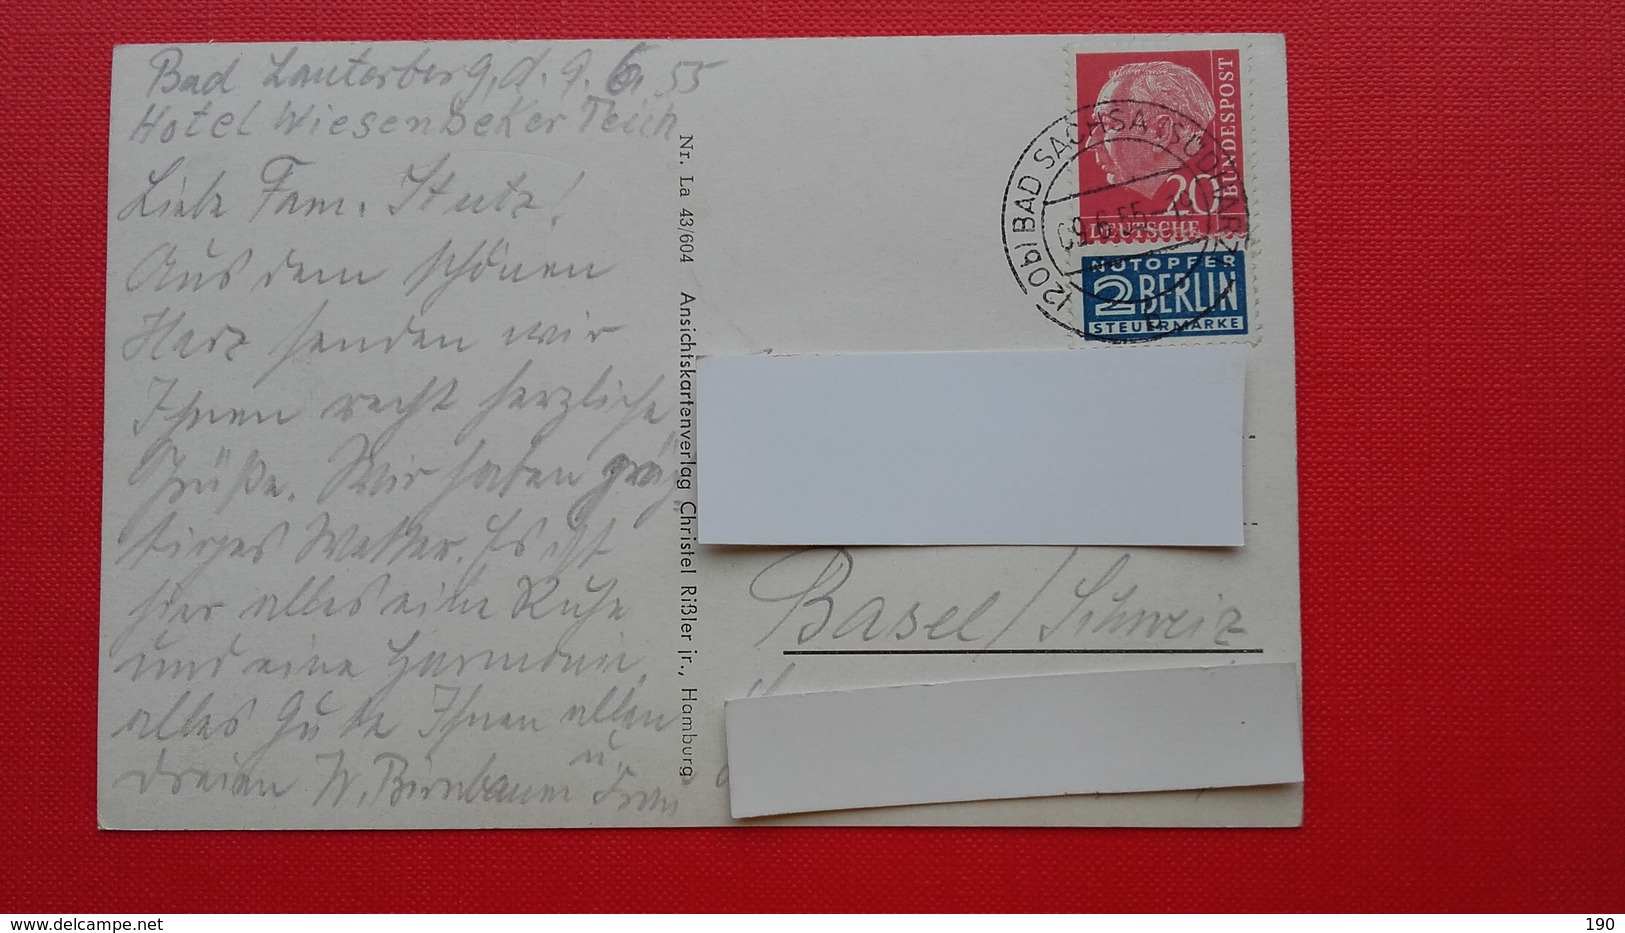 Bad Lauterberg, d. 9. 6. 55
Hotel Wiesenbeker Teich
Liebe Fam. Stutz!
Aus dem schönen
Harz senden wir
Ihnen recht herzliche
Grüße. Wir haben präch
tiges Wetter. Es ist
hier alles eine Ruhe
und eine Harmonie,
alles Gute Ihnen allen
dreien W. Birnbaum u. Frau
Nr. La 43/604 Ansichtskartenverlag Christel Rißler jr., Hamburg
BUNDESPOST
20
DEUTSCHE
NOTOPFER
2 BERLIN
STEUERMARKE
(20b) BAD SACHSA (SÜDHARZ)
09.6.55
Basel/Schweiz
© delcampe.net
190